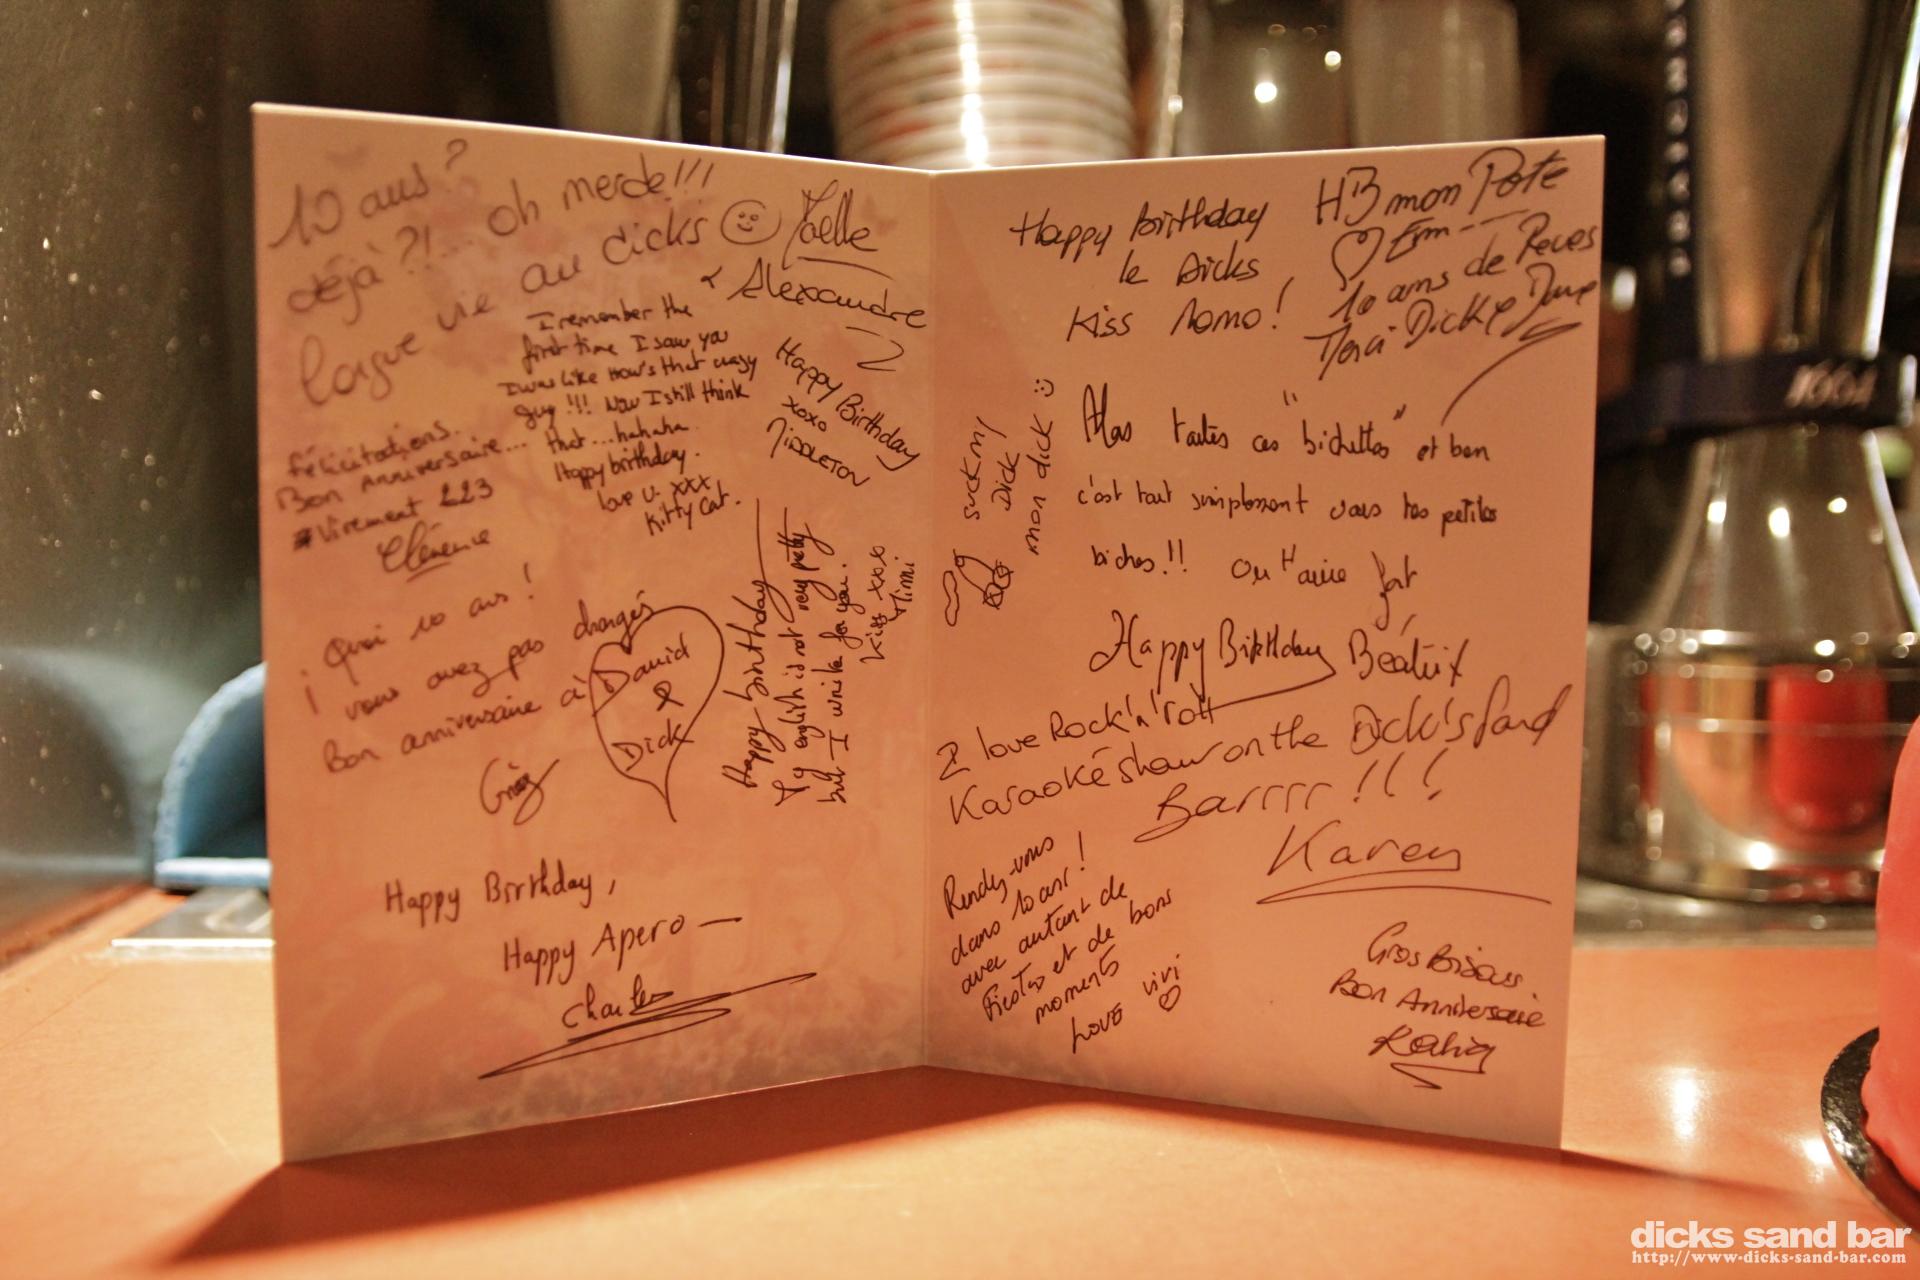 10 ans?
déjà?!... oh merde!!!
longue vie au dicks
Yaelle
& Alexandre
I remember the
first time I saw you
I was like how's that crazy
guy!!! Now I still think
that...hahaha.
Happy birthday.
love u. xxx
Kitty Cat.
Happy Birthday
xoxo
MIDDLETON
Félicitations.
Bon Anniversaire...
#Virement 223
Clémence
¡ Quoi 10 ans!
vous avez pas changés
Bon anniversaire à David
&
Dick
Happy birthday
My english is not very pretty
but I write for you.
Kiss xxx
Mimi
Happy Birthday,
Happy Apero —
Charles
Happy Birthday
le Dicks
Kiss Momo!
HB mon Pote
10 ans de Reves
Merci Dick
suck my
Dick/
mon dick :)
"bichettes" et ben
c'est tout simplement nous tes petites
biches!! On t'aime fort
Happy Birthday Béatrix
I love Rock'n'roll
Karaoké show on the Dick's Sand
Barrrr!!!
Karen
Rendez-vous
dans 10 ans!
avec autant de
fiestas et de bons
moments
Love vivi
Gros Bisous.
Bon Anniversaire
Katia
dicks sand bar
http://www.dicks-sand-bar.com